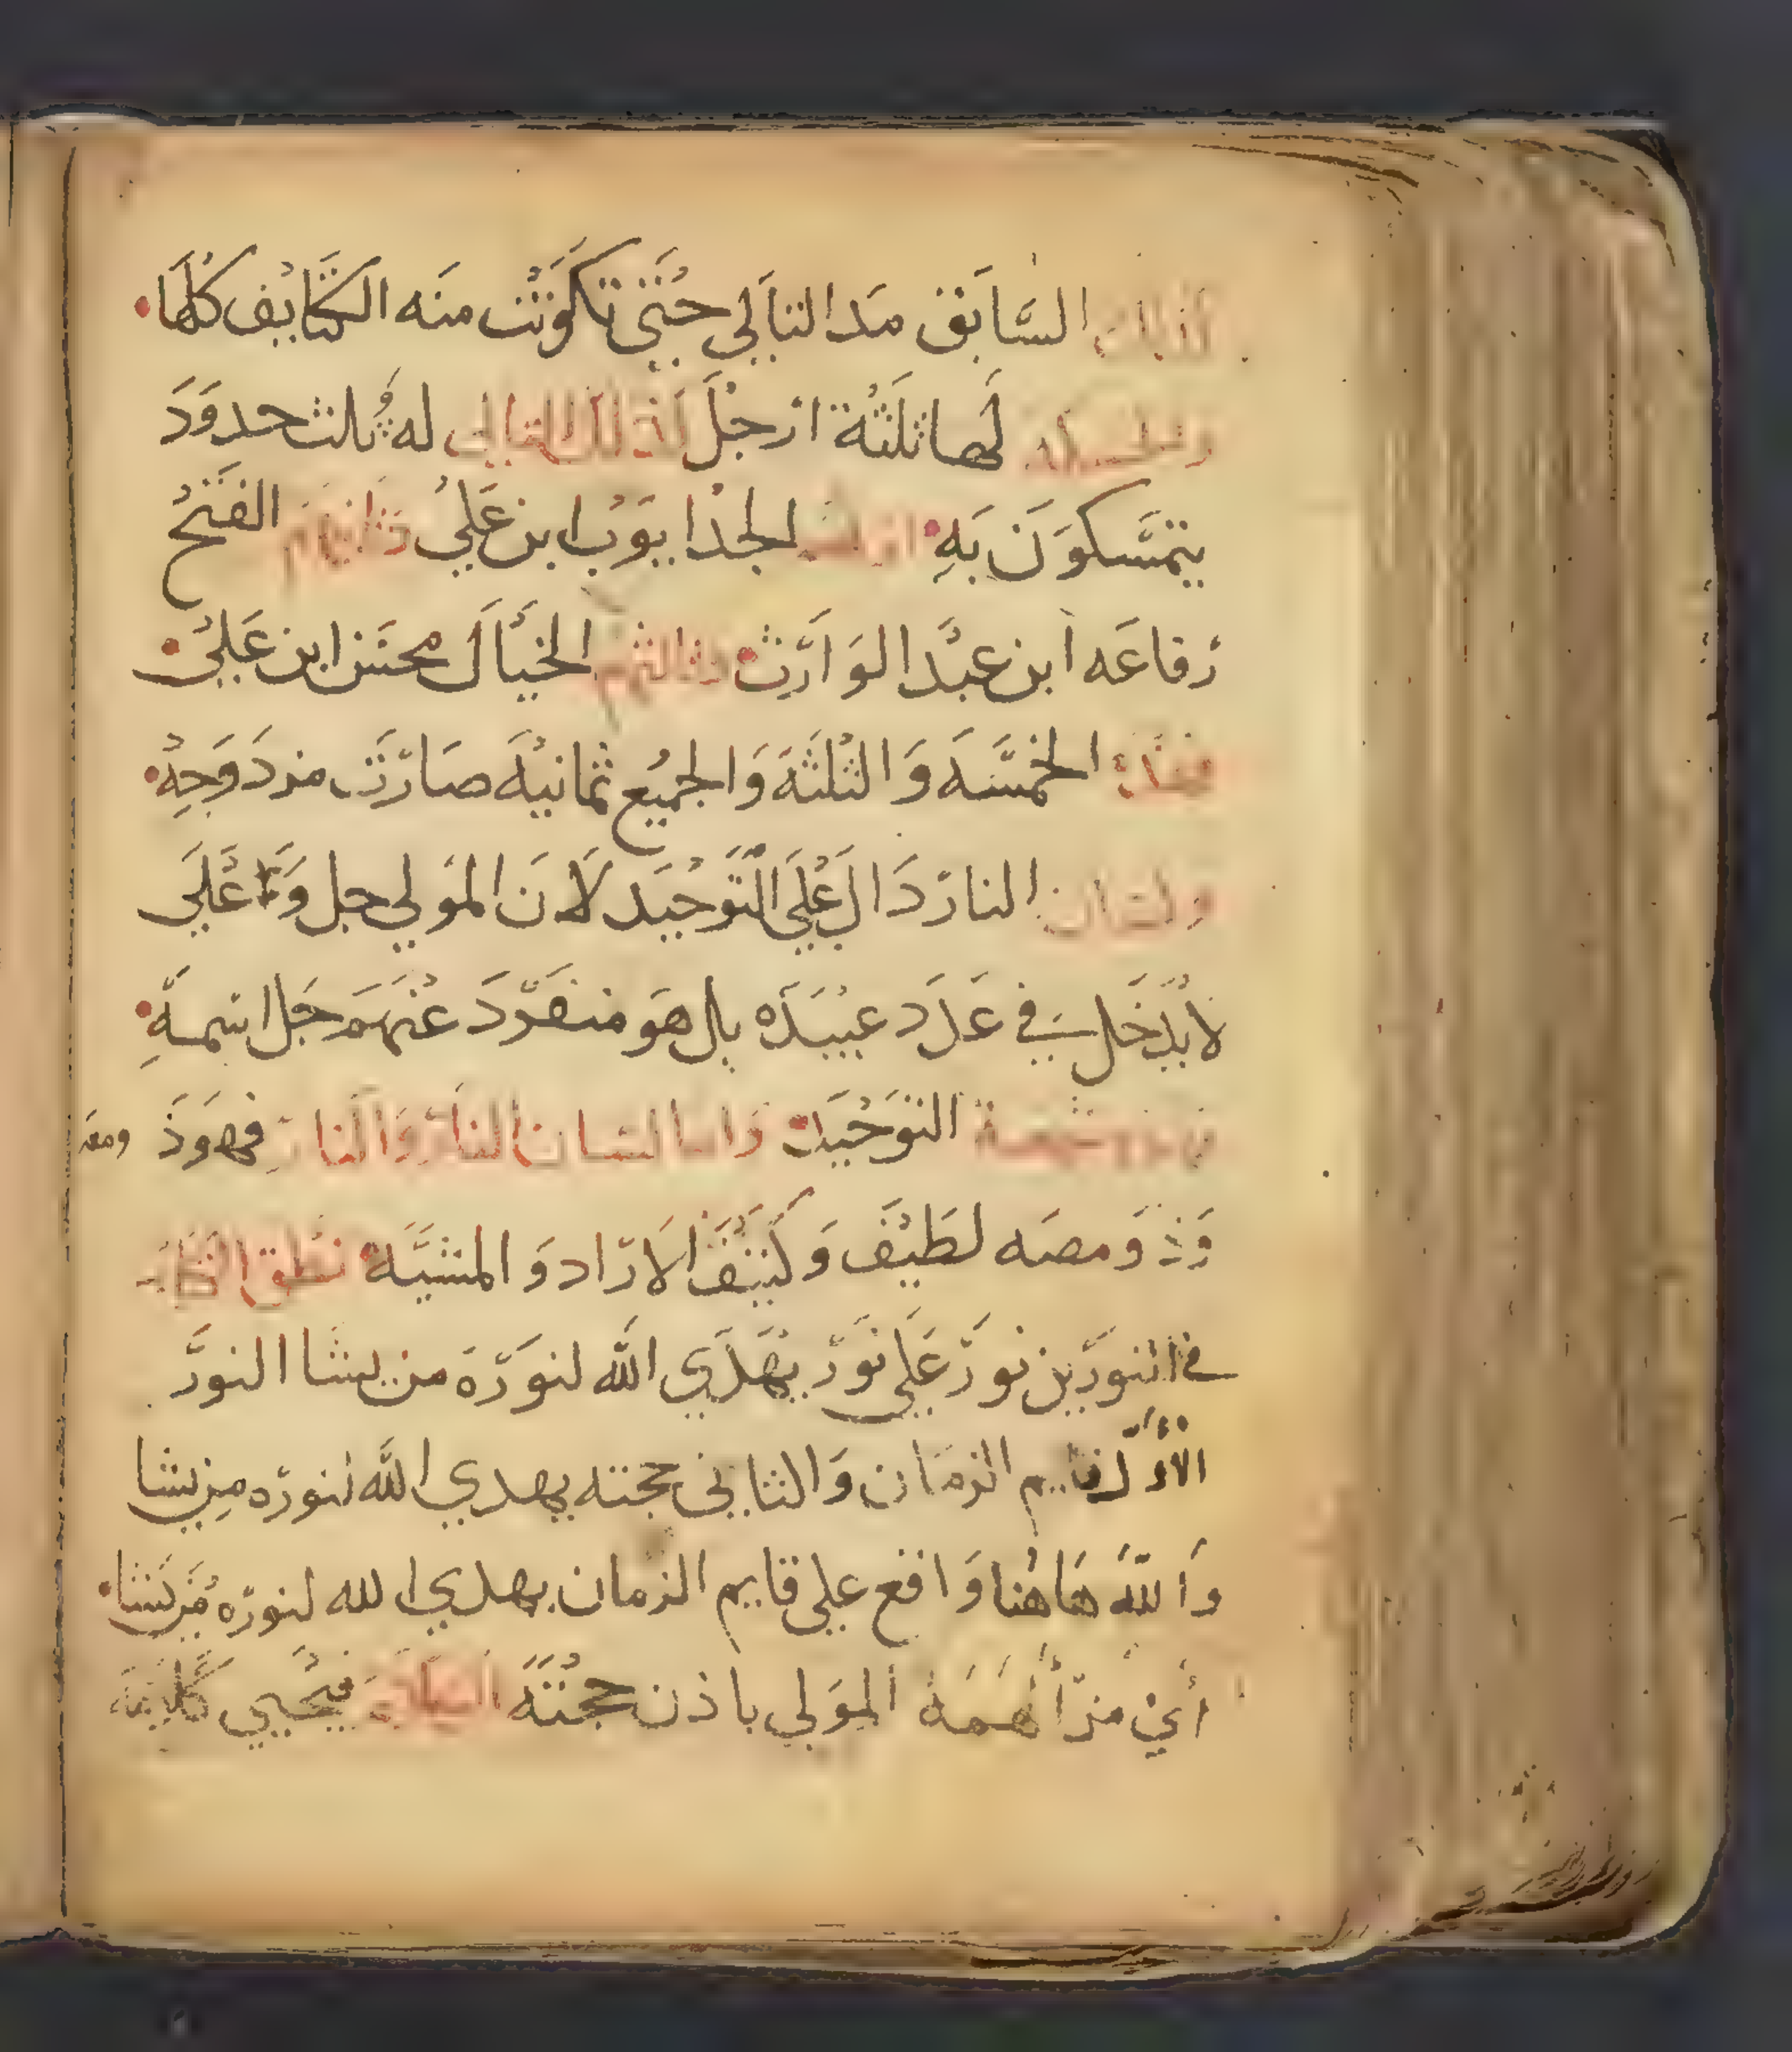 السَّابق مَد التالي حتي تكونت منه الكتايف كلها
لها ثلثة ارجل كذلك التالي له ثلث حدود
يتمسكون به اولهم الجد ايوب ابن علي وثانيهم الفتح
رفاعه ابن عبد الوارث وثالثهم الخيال محسن ابن علي
فهذه الخمسه والثلثة والجميع ثمانيه صارت مزدوجه
ولسان النار دال علي التوحيد لان المولي جل وعلي
لا يدخل في عدد عبيده بل هو منفرد عنهم جل اسمه
التوحيد واما لسان النار والنار فهو ذ ومعه
وذ ومصه لطيف وكثيف الاراد والمشية نطق
في النورين نور علي نور يهدي الله لنوره من يشا النور
الاول قايم الزمان والثاني حجته يهدي الله لنوره من يشا
والله هاهنا واقع علي قايم الزمان يهدي الله لنوره من يشا
اي من الهمه المولي باذن حجته فيحيي